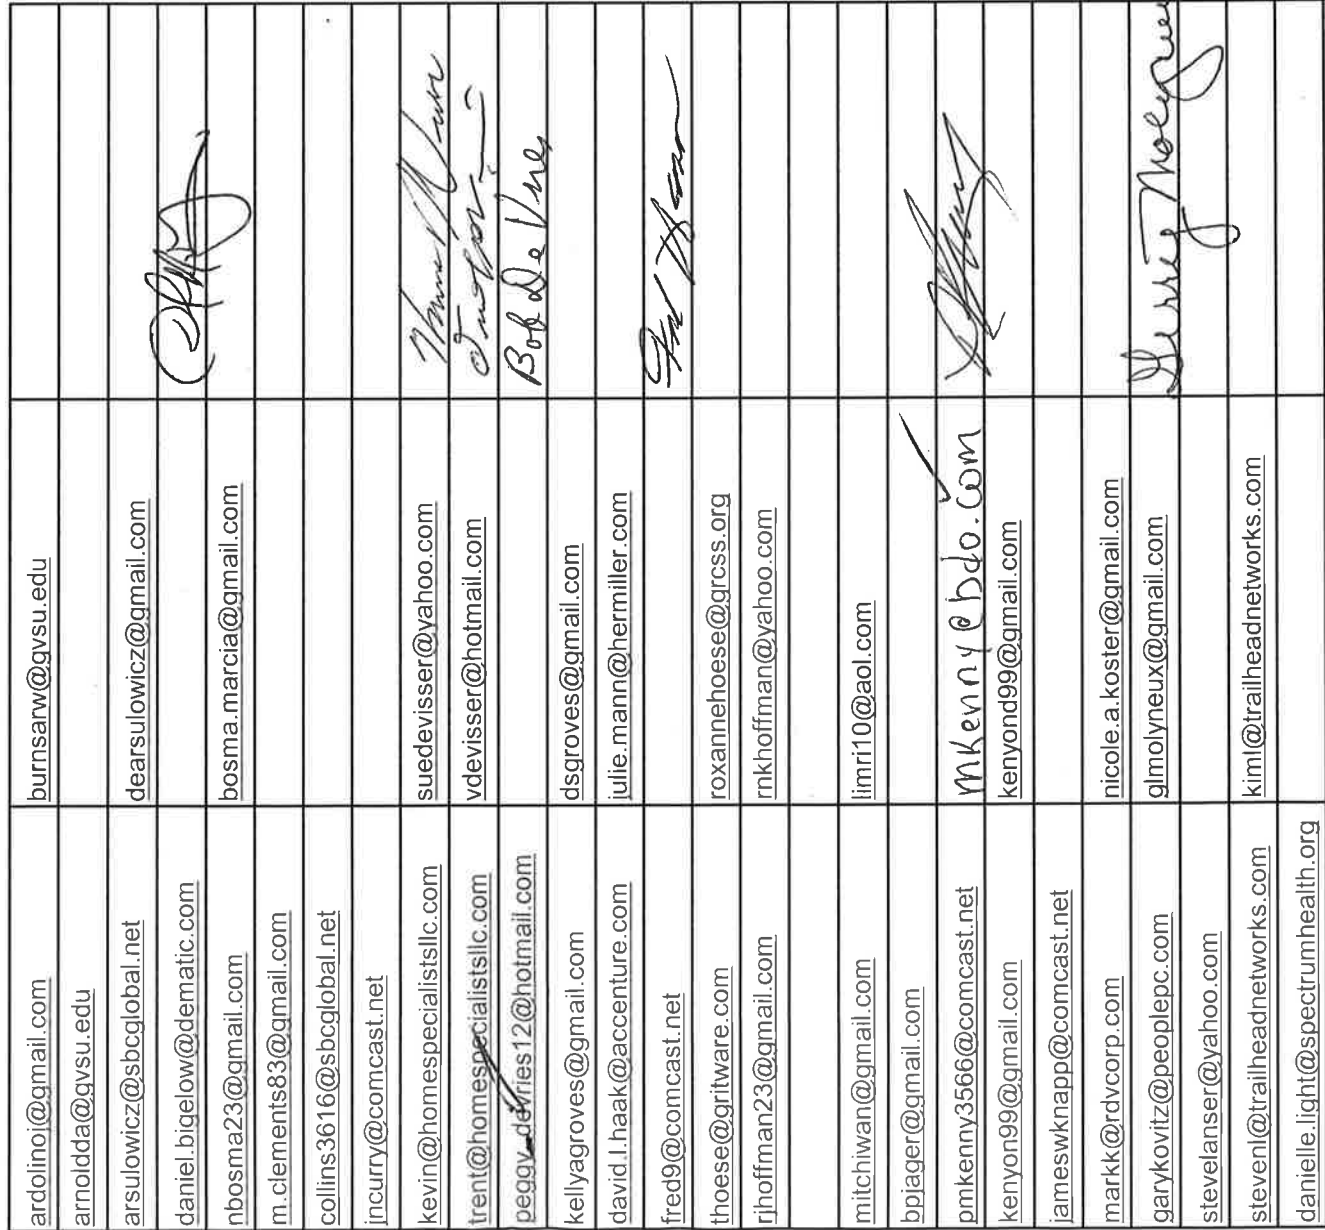 ardolinoj@gmail.com burnsarw@gvsu.edu
arnoldda@gvsu.edu
arsulowicz@sbcglobal.net dearsulowicz@gmail.com
daniel.bigelow@dematic.com
nbosma23@gmail.com bosma.marcia@gmail.com
m.clements83@gmail.com
collins3616@sbcglobal.net
jncurry@comcast.net
kevin@homespecialistsllc.com suedevisser@yahoo.com
trent@homespecialistsllc.com vdevisser@hotmail.com
peggy_devries12@hotmail.com Bob De Vries
kellyagroves@gmail.com dsgroves@gmail.com
david.l.haak@accenture.com julie.mann@hermiller.com
fred9@comcast.net
thoese@gritware.com roxannehoese@grcss.org
rjhoffman23@gmail.com rnkhoffman@yahoo.com
mitchiwan@gmail.com limri10@aol.com
bpjager@gmail.com
pmkenny3566@comcast.net mkenny@bdo.com
kenyon99@gmail.com kenyond99@gmail.com
jameswknapp@comcast.net
markk@rdvcorp.com nicole.a.koster@gmail.com
garykovitz@peoplepc.com glmolyneux@gmail.com
stevelanser@yahoo.com
stevenl@trailheadnetworks.com kiml@trailheadnetworks.com
danielle.light@spectrumhealth.org